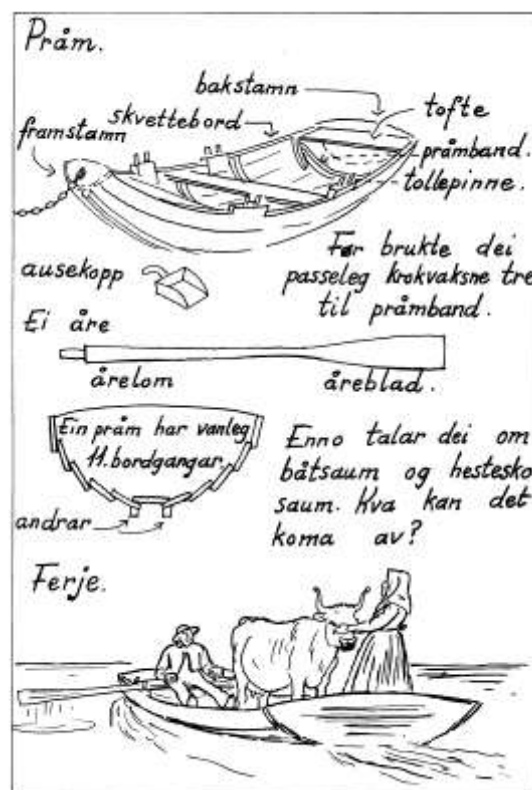 Pråm.
bakstamn
skvettebord
tofte
framstamn
pråmband.
tollepinne.
ausekopp
Før brukte dei
passeleg krokvaksne tre
til pråmband.
Ei åre
årelom
åreblad.
Ein pråm har vanleg
11. bordgangar.
andrar
Enno talar dei om
båtsaum og hestesko
saum. Kva kan det
koma av?
Ferje.